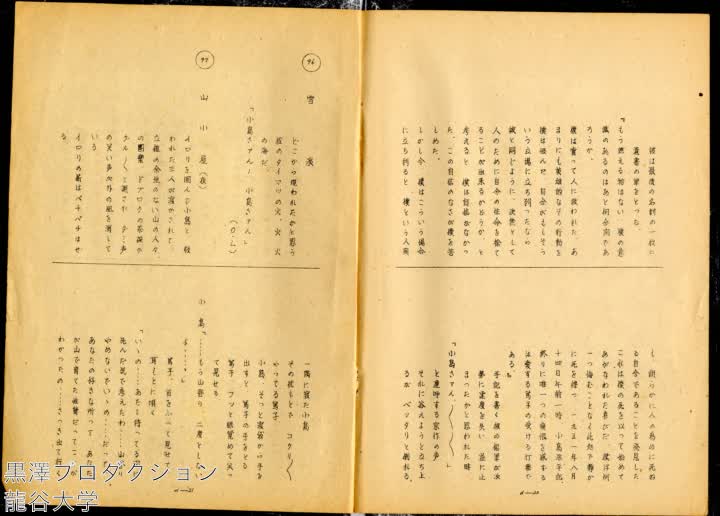 彼は最後の名刺の一枚に
遺書の筆をとる。
『もう燃える物はない 僕の意
識のあるのはあと何分間であ
ろうか。
僕は曽って人に救われた あ
まりにも英雄的なその行動を
僕は恐れ 自分がもしそう
いう立場に立ち到ったなら
誠と同じように、決然として
人のために自分の生命を捨て
ることが出来るかどうか、と
考えると 僕は自信がなかっ
た、この自信のなさが僕を苦
しめた。
しかし今 僕はこういう場合
に立ち到ると 僕という人間
も、朗らかに人の為めに死ぬ
る自分であることを発見した。
これは僕の死を以って始めて
あがなわれた喜びだ 僕は何
一つ悔むことなく此処で静か
に死を待つ 一九五一年八月
十四日午前一時 小島
終りに唯一つの後悔を感ずる
は愛する篤子の受ける打撃で
ある。』
手記を書く彼の鉛筆が次
第に速度を失い 遂に止
まったかと思われた時
「小島さァん」
と連呼する
それに答えようと立ち上
るが ベッタリと倒れる。
96 雪渓
どこから現われたかと思う
程のタイマツの火、火、火
の海だ。
「小島さァん! 小島さァん」
(O・L)
97 山小屋(夜)
イロリを囲んで小島と 救
われた三人が寝かされて
な程の余地のない山の人々、
の
の笑い声が外の風を消して
いる
イロリの薪はペチペチはぜ
る
一隅に寝た小島
その枕もとで コクリ〱
やってる篤子
小島、そっと寝袋から手を
出すと 篤子の手をとる
篤子 フッと眼覚めて笑っ
て見せる
小島「……もう山登り 二度としな
いよ……」
篤子、首をふって見せて
耳もとに囁く
「いゝの……あたし待ってる間
死んだ気で考えたわ……山登り
やめないでいゝわ……だって
あなたの好きな所って あなた
が山で育てた性質だってことが
わかったの……さっき出て行く
d—21
d—22
黒澤プロダクション
龍谷大学